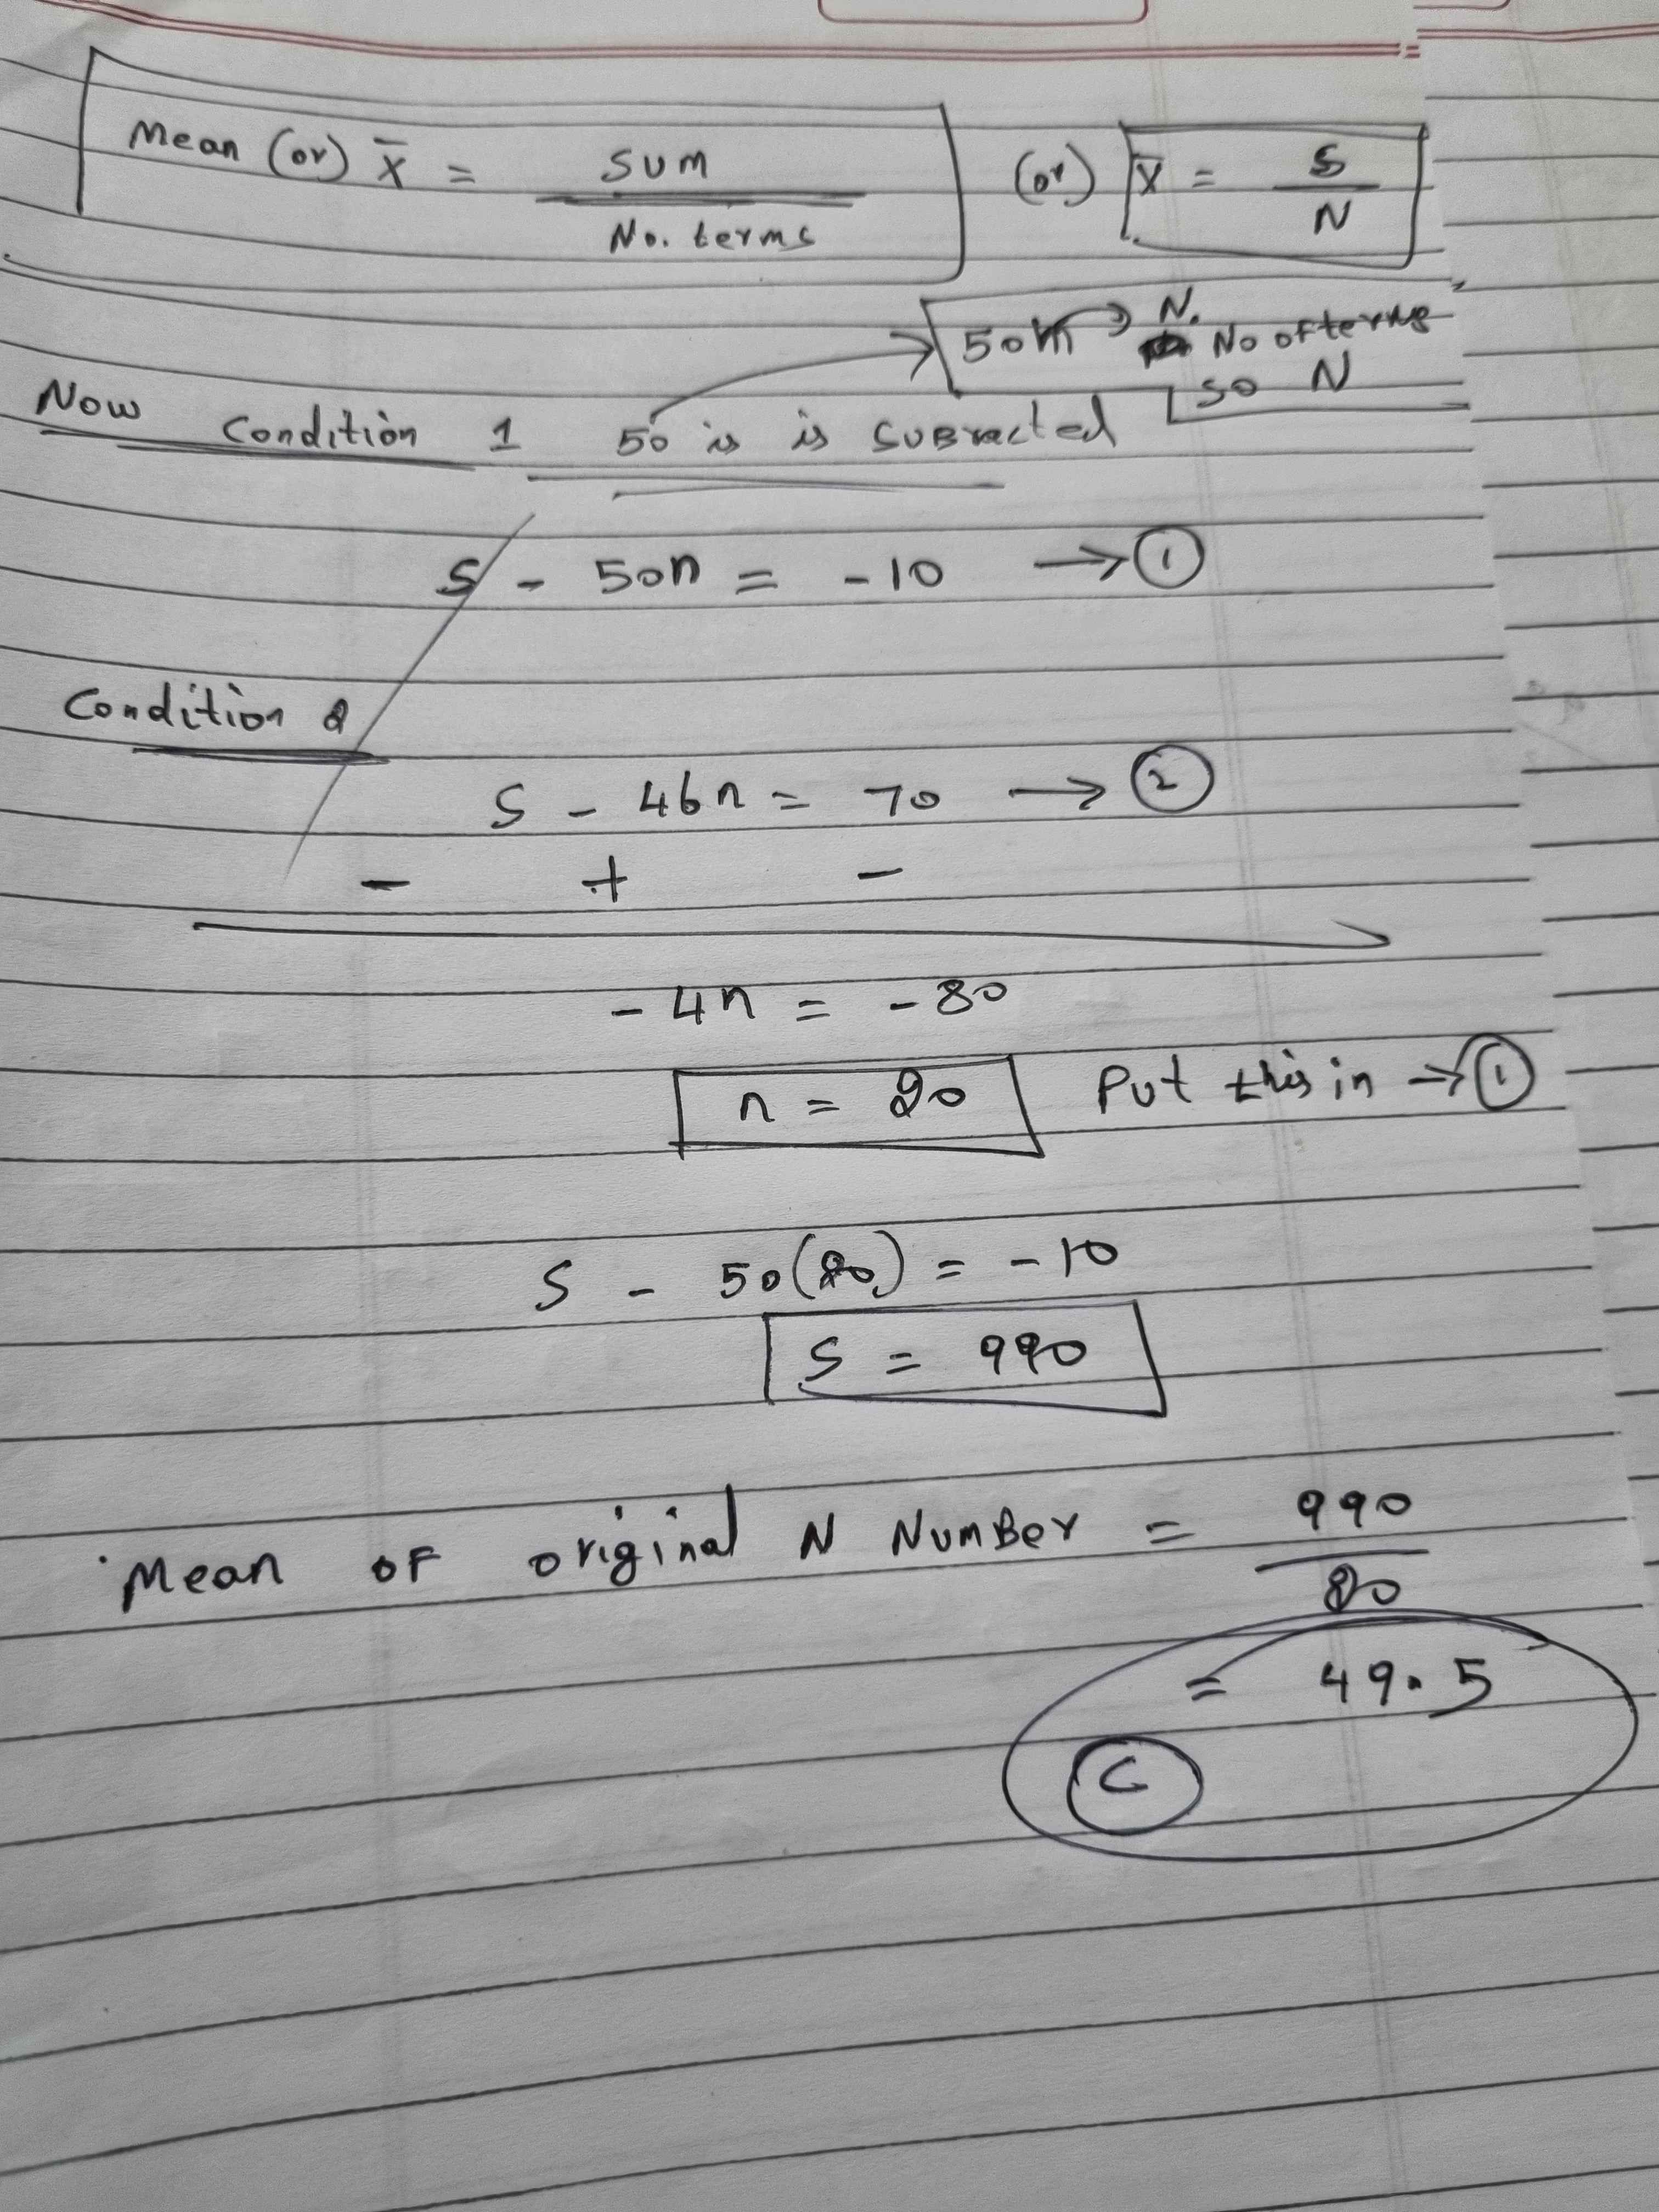 Mean (or) x̄ = SUM / No. terms (or) x̄ = S / N
50n → N. No of terms
so N
Now Condition 1 50 is is SUBracted
S - 50n = -10 → ①
Condition 2
S - 46n = 70 → ②
- + -
-4n = -80
n = 20 Put this in → ①
S - 50(20) = -10
S = 990
Mean OF original N NumBer = 990 / 20
= 49.5
C